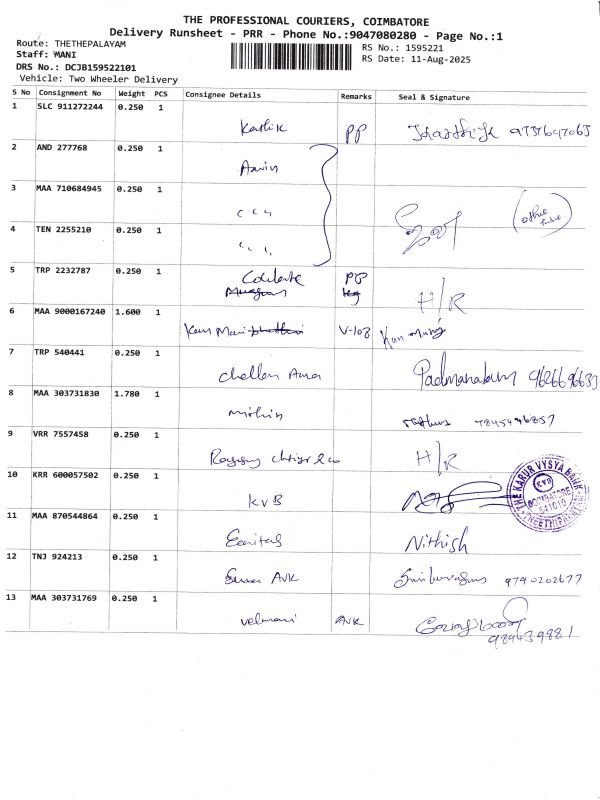 THE PROFESSIONAL COURIERS, COIMBATORE
Delivery Runsheet - PRR - Phone No.:9047080280 - Page No.:1
Route: THETHEPALAYAM
Staff: MANI
DRS No.: DCJB159522101
Vehicle: Two Wheeler Delivery
RS No.: 1595221
RS Date: 11-Aug-2025
S No Consignment No Weight PCS Consignee Details Remarks Seal & Signature
1 SLC 911272244 0.250 1
Karthik PP Karthik
2 AND 277768 0.250 1
3 MAA 710684945 0.250 1
4 TEN 2255210 0.250 1
5 TRP 2232787 0.250 1
H/R
6 MAA 9000167240 1.600 1
Kan Mani V-108
7 TRP 540441 0.250 1
Chellam Padmanabam
8 MAA 303731830 1.780 1
Mithin 7845496857
9 VRR 7557458 0.250 1
H/R
10 KRR 600057502 0.250 1
KVB
THE KARUR VYSYA BANK
KVB
COIMBATORE
641010
11 MAA 870544864 0.250 1
Nithish
12 TNJ 924213 0.250 1
AVK 9790202677
13 MAA 303731769 0.250 1
Velmani AVK
989439881